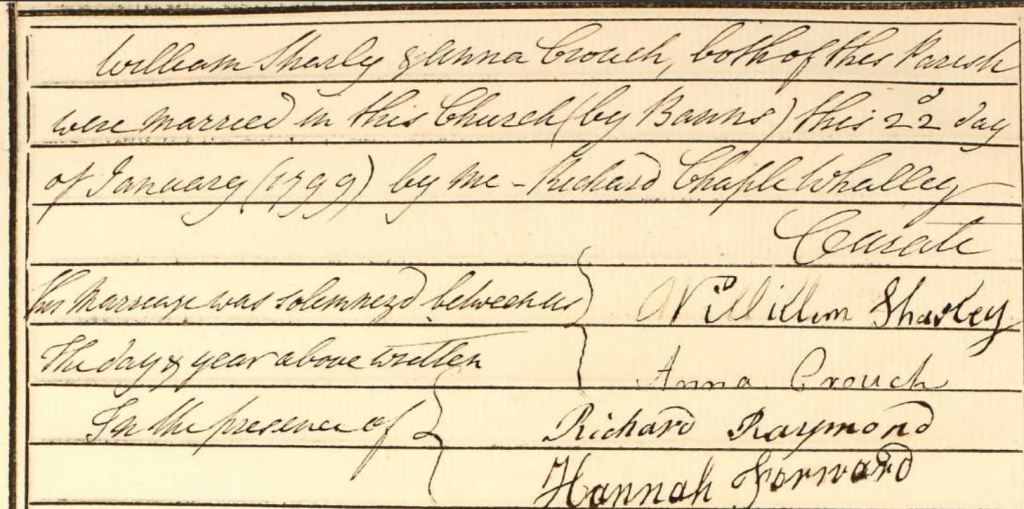 William Sharly & Anna Crouch, both of this Parish
were married in this Church (by Banns) this 22d day
of January (1799) by me - Richard Chaple Whalley
Curate
This Marriage was solemnized between us } William Sharley
the day & year above written } Anna Crouch
In the presence of { Richard Raymond
Hannah Forward